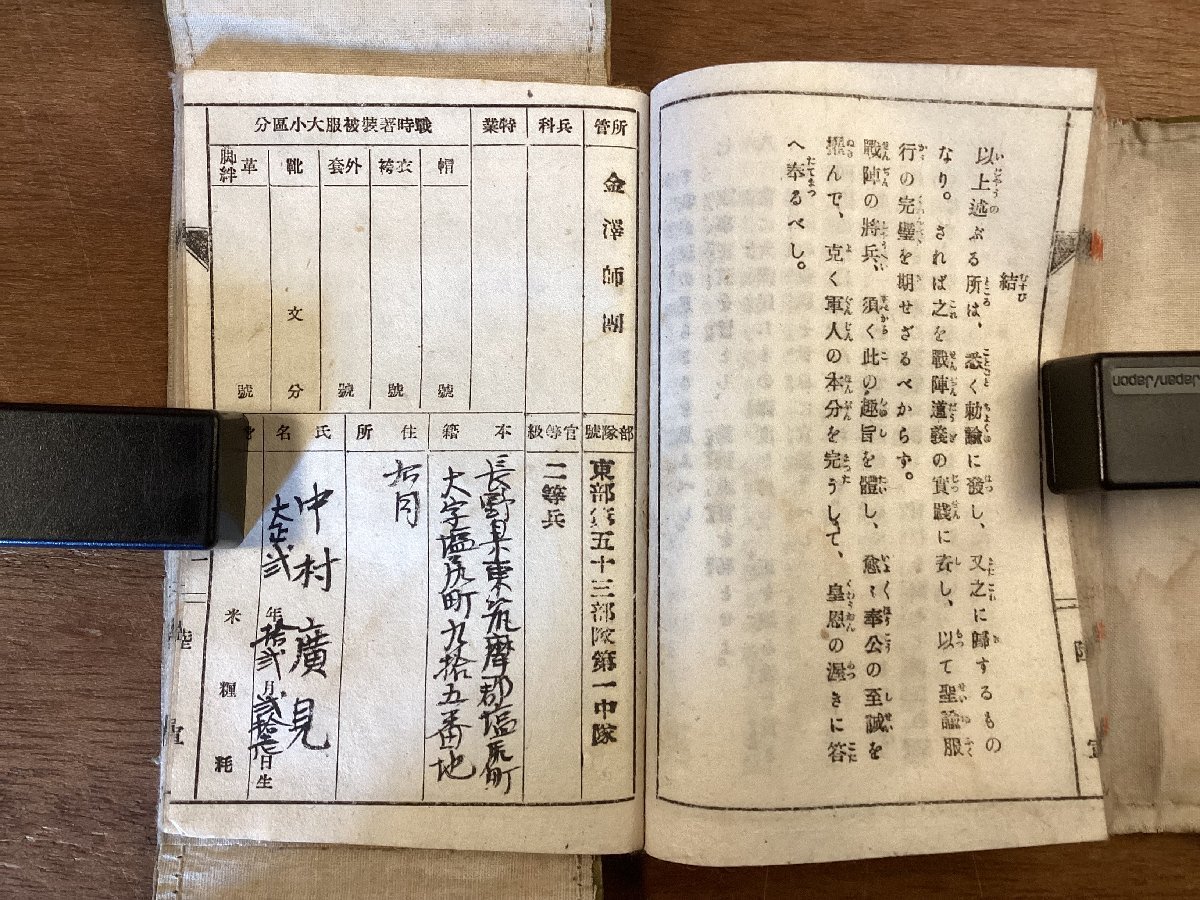 結
以上述ぶる所は、悉く勅諭に發し、又之に歸するもの
なり。されば之を戰陣道義の實踐に資し、以て聖諭服
行の完璧を期せざるべからず。
戰陣の將兵、須く此の趣旨を體し、愈〻奉公の至誠を
擢んで、克く軍人の本分を完うして、皇恩の渥きに答
へ奉るべし。
所管
金澤師團
兵科
特業
戰時著裝被服大小區分
帽
號
衣袴
號
外套
號
靴
文
分
革脚絆
號
部隊號
東部第五十三部隊第一中隊
官等級
二等兵
本籍
長野県東筑摩郡塩尻町
大字塩尻町九拾五番地
住所
右同
氏名
中村廣見
大正弐年拾弐月弐拾七日生
米
糎
粍
Japan/Japon